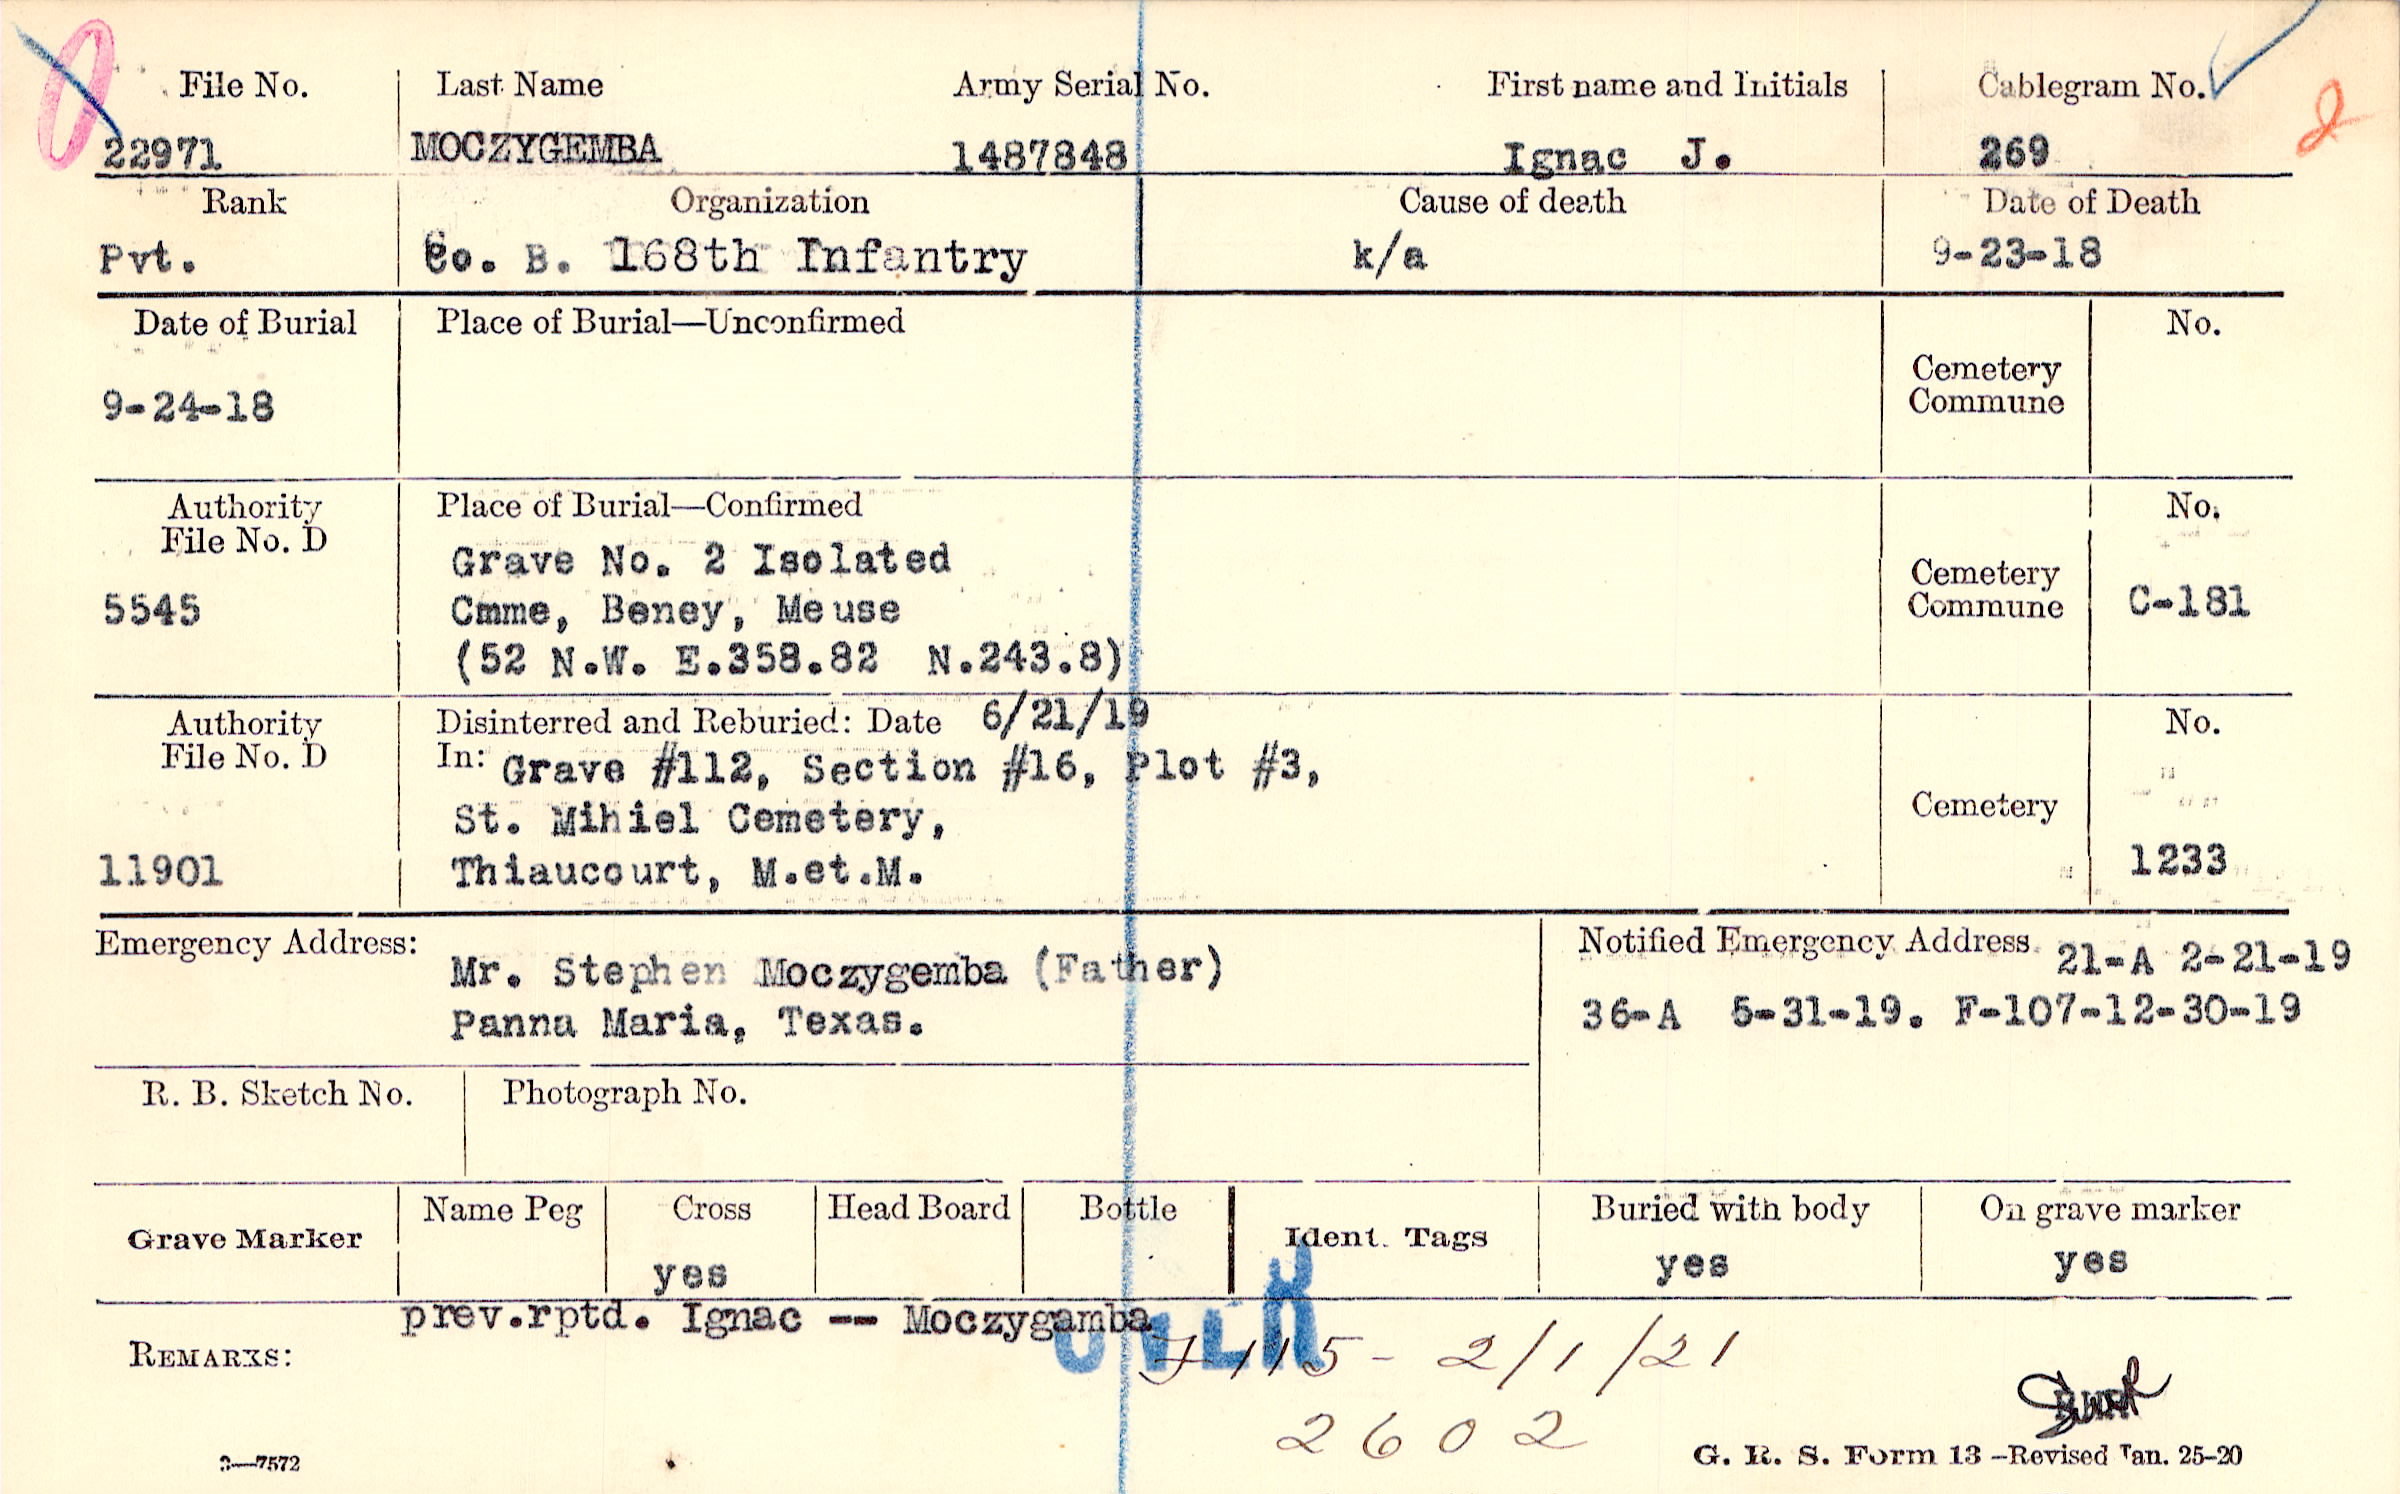 File No. Last Name Army Serial No. First name and Initials Cablegram No. 2
22971 MOCZYGEMBA 1487848 Ignac J. 269
Rank Organization Cause of death Date of Death
Pvt. Co. B. 168th Infantry k/a 9-23-18
Date of Burial Place of Burial—Unconfirmed No.
9-24-18
Cemetery
Commune
Authority Place of Burial—Confirmed No.
File No. D
5545
Grave No. 2 Isolated
Cmme, Beney, Meuse
(52 N.W. E.358.82 N.243.8)
Cemetery
Commune C-181
Authority Disinterred and Reburied: Date 6/21/19 No.
File No. D In: Grave #112, Section #16, Plot #3,
St. Mihiel Cemetery, Cemetery
11901 Thiaucourt, M.et.M. 1233
Emergency Address: Notified Emergency Address 21-A 2-21-19
Mr. Stephen Moczygemba (Father)
Panna Maria, Texas. 36-A 5-31-19. F-107-12-30-19
R. B. Sketch No. Photograph No.
Grave Marker Name Peg Cross Head Board Bottle Ident. Tags Buried with body On grave marker
yes yes yes
prev.rptd. Ignac -- Moczygamba
REMARKS: 7-115- 2/1/21
2602
3—7572 G. R. S. Form 13 –Revised Jan. 25-20